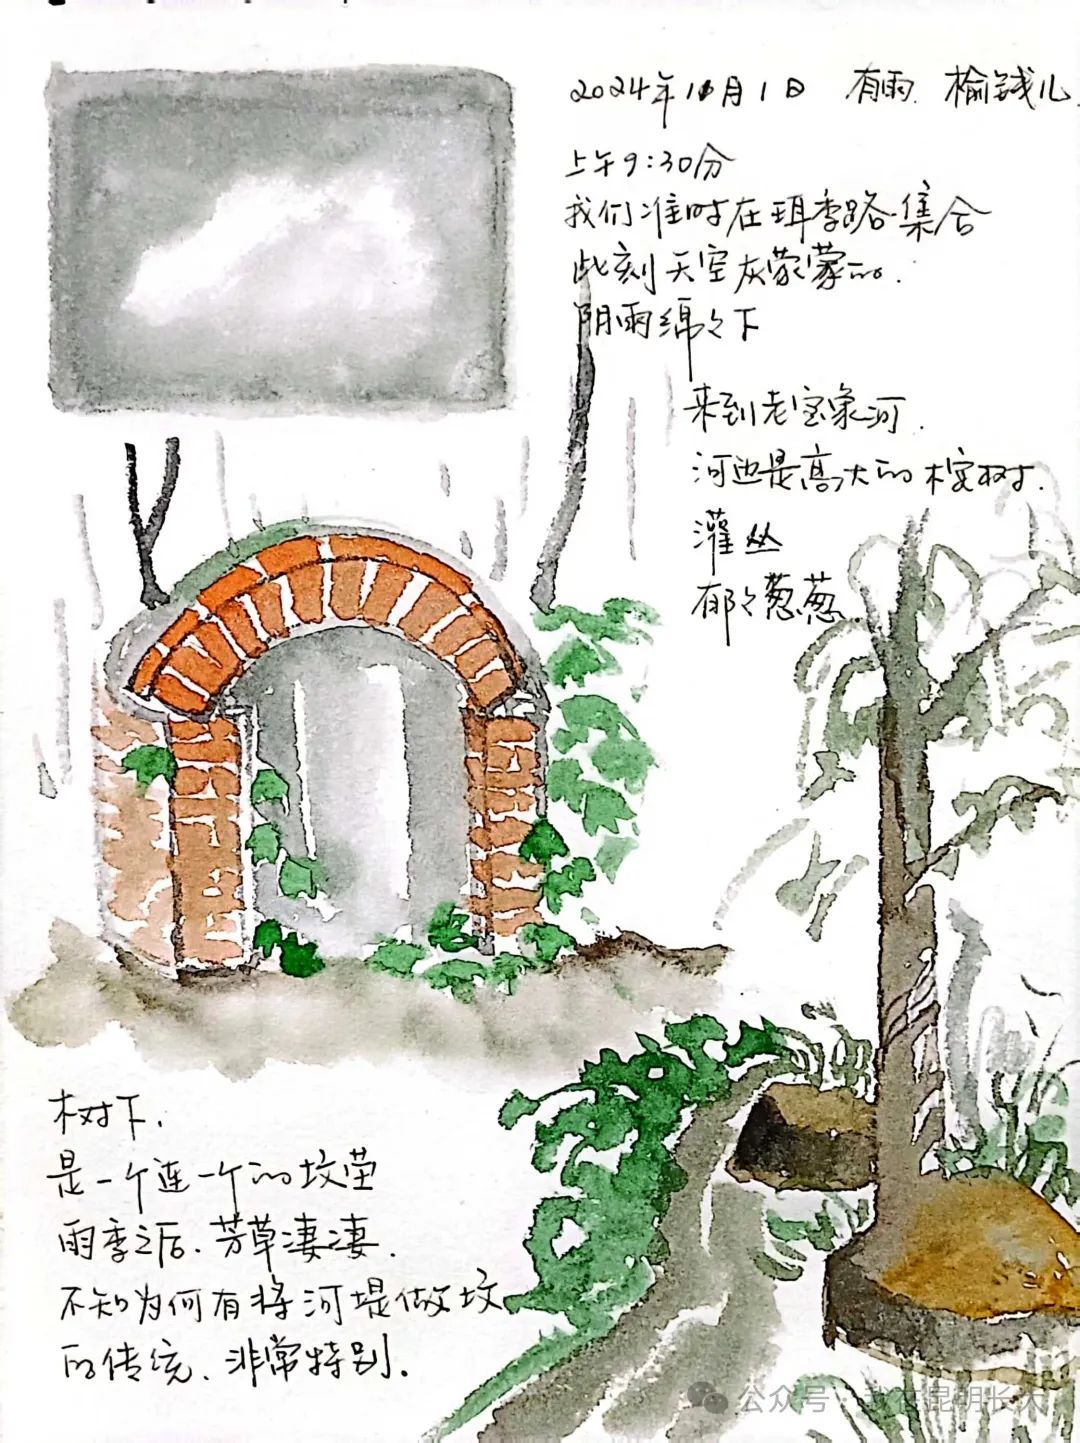 2024年11月1日 有雨. 榆钱儿
上午9:30分
我们准时在珥季路集合
此刻天空灰蒙蒙的.
阴雨绵々下
来到老宝象河.
河边是高大的桉树.
灌丛
郁々葱葱
树下.
是一个连一个的坟茔
雨季之后.芳草凄凄.
不知为何有将河堤做坟
的传统、非常特别.
公众号·我在昆明长大